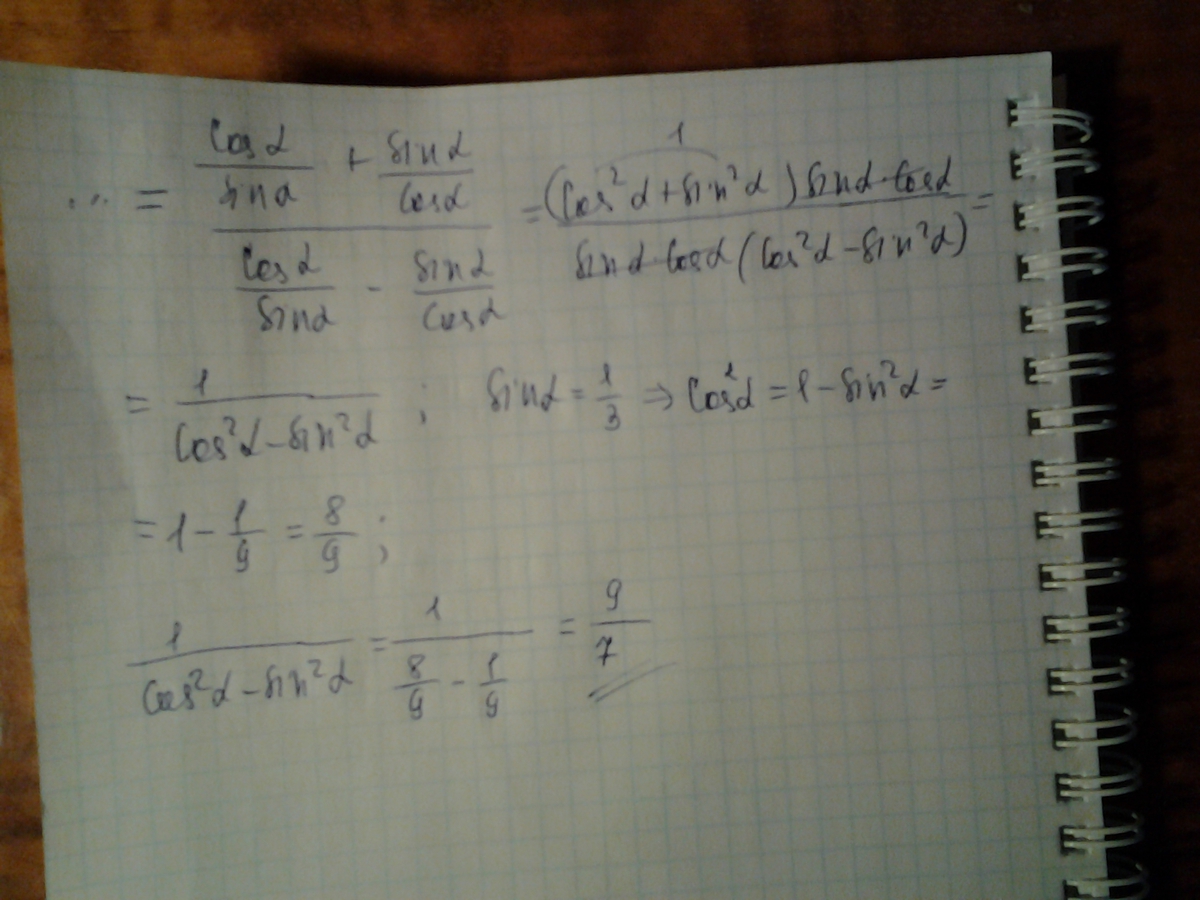 ... = (cosα/sinα + sinα/cosα)/(cosα/sinα - sinα/cosα) = (cos²α + sin²α) sinα·cosα/sinα·cosα (cos²α - sin²α) =
1
= 1/cos²α - sin²α ; sinα = 1/3 ⇒ cos²α = 1 - sin²α =
= 1 - 1/9 = 8/9 ;
1/cos²α - sin²α = 1/(8/9 - 1/9) = 9/7